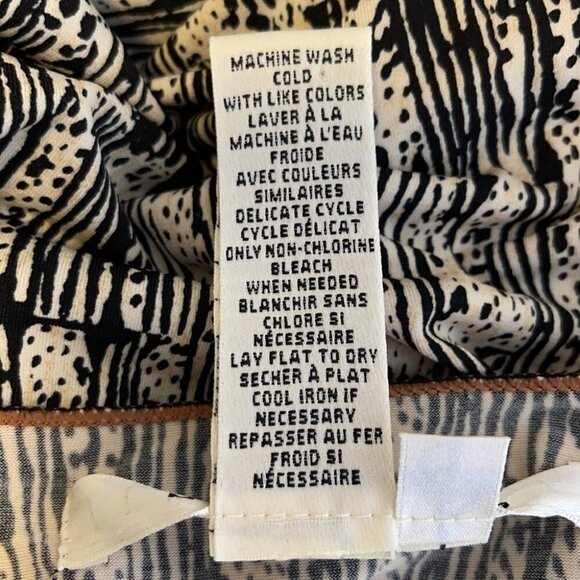 MACHINE WASH
COLD
WITH LIKE COLORS
LAVER À LA
MACHINE À L'EAU
FROIDE
AVEC COULEURS
SIMILAIRES
DELICATE CYCLE
CYCLE DÉLICAT
ONLY NON-CHLORINE
BLEACH
WHEN NEEDED
BLANCHIR SANS
CHLORE SI
NÉCESSAIRE
LAY FLAT TO DRY
SECHER À PLAT
COOL IRON IF
NECESSARY
REPASSER AU FER
FROID SI
NÉCESSAIRE